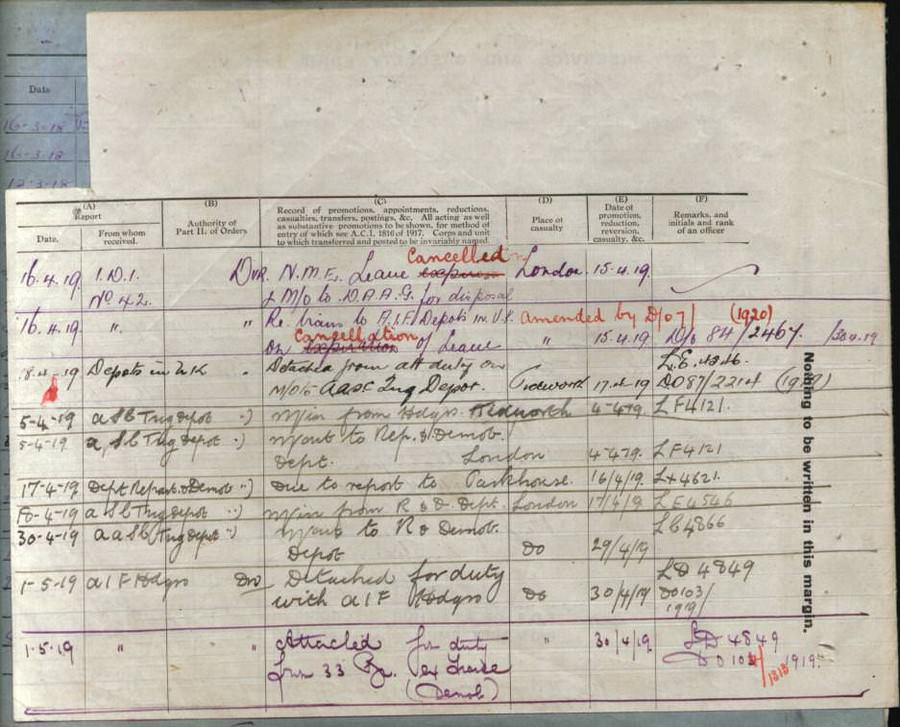 Date
16-3-18
16-3-18
12-3-18
(A)
Report
Date.
From whom
received.
(B)
Authority of
Part II. of Orders
(C)
Record of promotions, appointments, reductions,
casualties, transfers, postings, &c. All acting as well
as substantive promotions to be shown, for method of
entry of which see A.C.I. 1816 of 1917. Corps and unit
to which transferred and posted to be invariably named.
(D)
Place of
casualty
(E)
Date of
promotion,
reduction,
reversion,
casualty, &c.
(F)
Remarks, and
initials and rank
of an officer
Cancelled
16.4.19 I.D.I. Dvr. N.M.E. Leave expiration London 15.4.19
No 42. & M/o to D.A.A.G. for disposal
16.4.19 " " Re. trans to A.I.F. Depots in U.K. amended by D/07/ (1920)
Cancellation
on expiration of Leave " 15.4.19 D/o 84/2467. /30.4.19
18-4-19 Depots in UK " Detached from all duty on L.E. 4246.
M/O to AASC Trg Depot. Tidworth 17.4.19 DO87/2214 (1919)
5-4-19 a S C Trng Depot ") M/in from Hdqrs. Tidworth 4-4-19. LF4121.
5-4-19 a, S C Trng Depot ") M/out to Rep. & Demob.
Dept. London 4-4-19. LF4121
17-4-19 Dept Repat. & Demob ") Due to report to Parkhouse. 16/4/19 L44621.
18-4-19 a S C Trng Depot ") M/in from R & D. Dept. London 17/4/19 LE4546
30-4-19 a a S C (Trng depot ") M/out to R & Demob. LC4866
Depot Do 29/4/19
1-5-19 A I F Hdqrs Dvr Detached for duty LD 4849
with A I F Hdqrs Do 30/4/19 DO103/
1919/
1.5.19 " " Attached for duty " 30/4/19. LD 4849
from 33 Qr. ex Leave DO 103/1818 1919.
(Demob)
Nothing to be written in this margin.